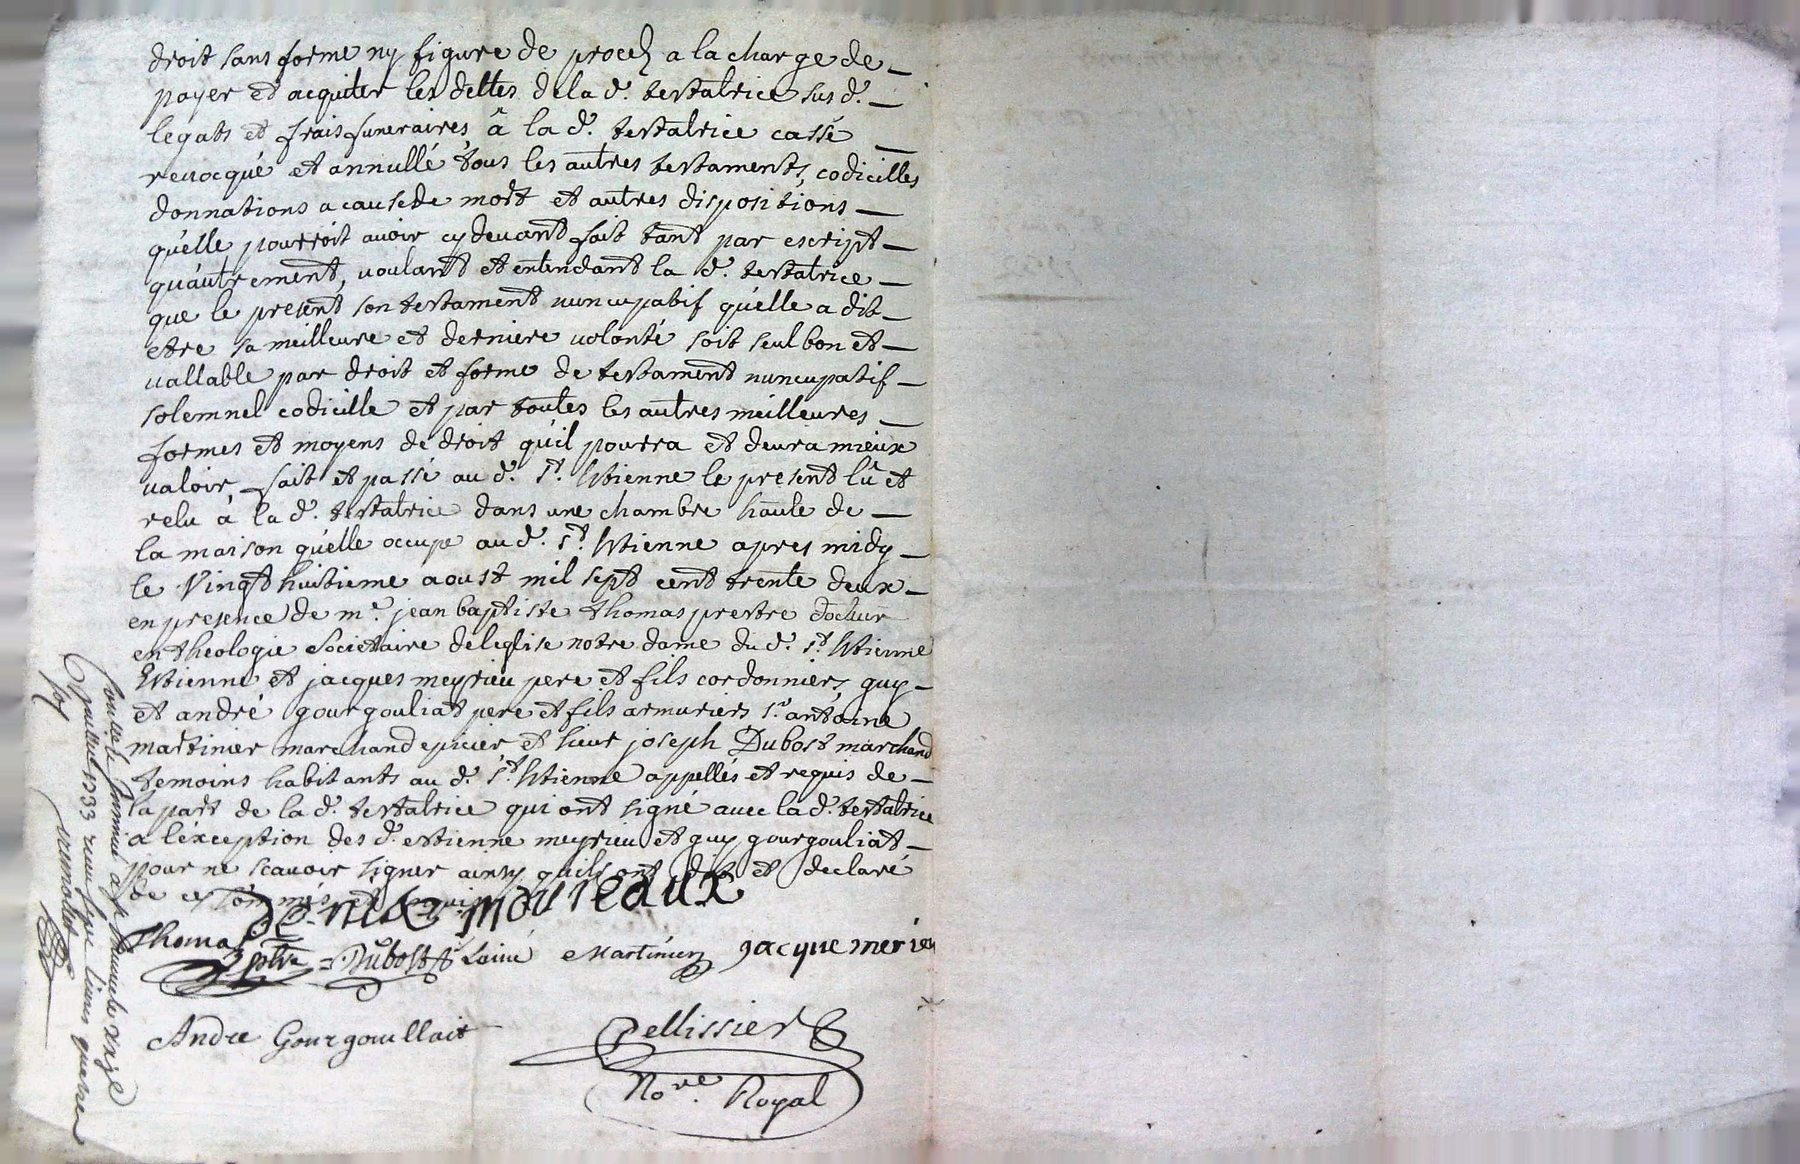 droit sans forme ny figure de procez a la charge de
payer et acquiter les dettes de la d.e testatrice sus d.
legats et frais funeraires â la d.e testatrice cassé
revocqué et annullé tous les autres testaments, codicilles
donnations a cause de mort et autres dispositions
qu'elle pourroit avoir cy devant fait tant par escript
qu'autrement, voulant et entendant la d.e testatrice
que le present son testament nuncupatif qu'elle a dit
etre sa meilleure et derniere volonté soit seul bon et
vallable par droit et forme de testament nuncupatif
solemnel codicille et par toutes les autres meilleures
formes et moyens de droit qu'il pourra et devra mieux
valoir, fait et passé au d. St. Etienne le present lû et
relu a la d.e testatrice dans une chambre haute de
la maison qu'elle occupe au d. St. Etienne apres midy
le Vingt huitieme aoust mil sept cent trente deux
en presence de me. jean baptiste thomas prestre docteur
en theologie societaire de leglise notre dame du d. St. Etienne
Etienne et jacques meyrieu pere et fils cordonniers, guy
et andré gourgouliat pere et fils armuriers sr. antoine
martinier marchand epicier et sieur joseph Dubost marchand
temoins habitants au d. St. Etienne appellés et requis de
la part de la d.e testatrice qui ont signé avec la d.e testatrice
a lexception des d. estienne meyrieu et guy gourgouliat
pour ne scavoir signer ainsy quils ont dit et declaré
de ce
mourieaux
Thomas
ptre Dubost Lainé Martinier jacque merieu
Andre Gourgoullait
Pellissier
No.re Royal
1733